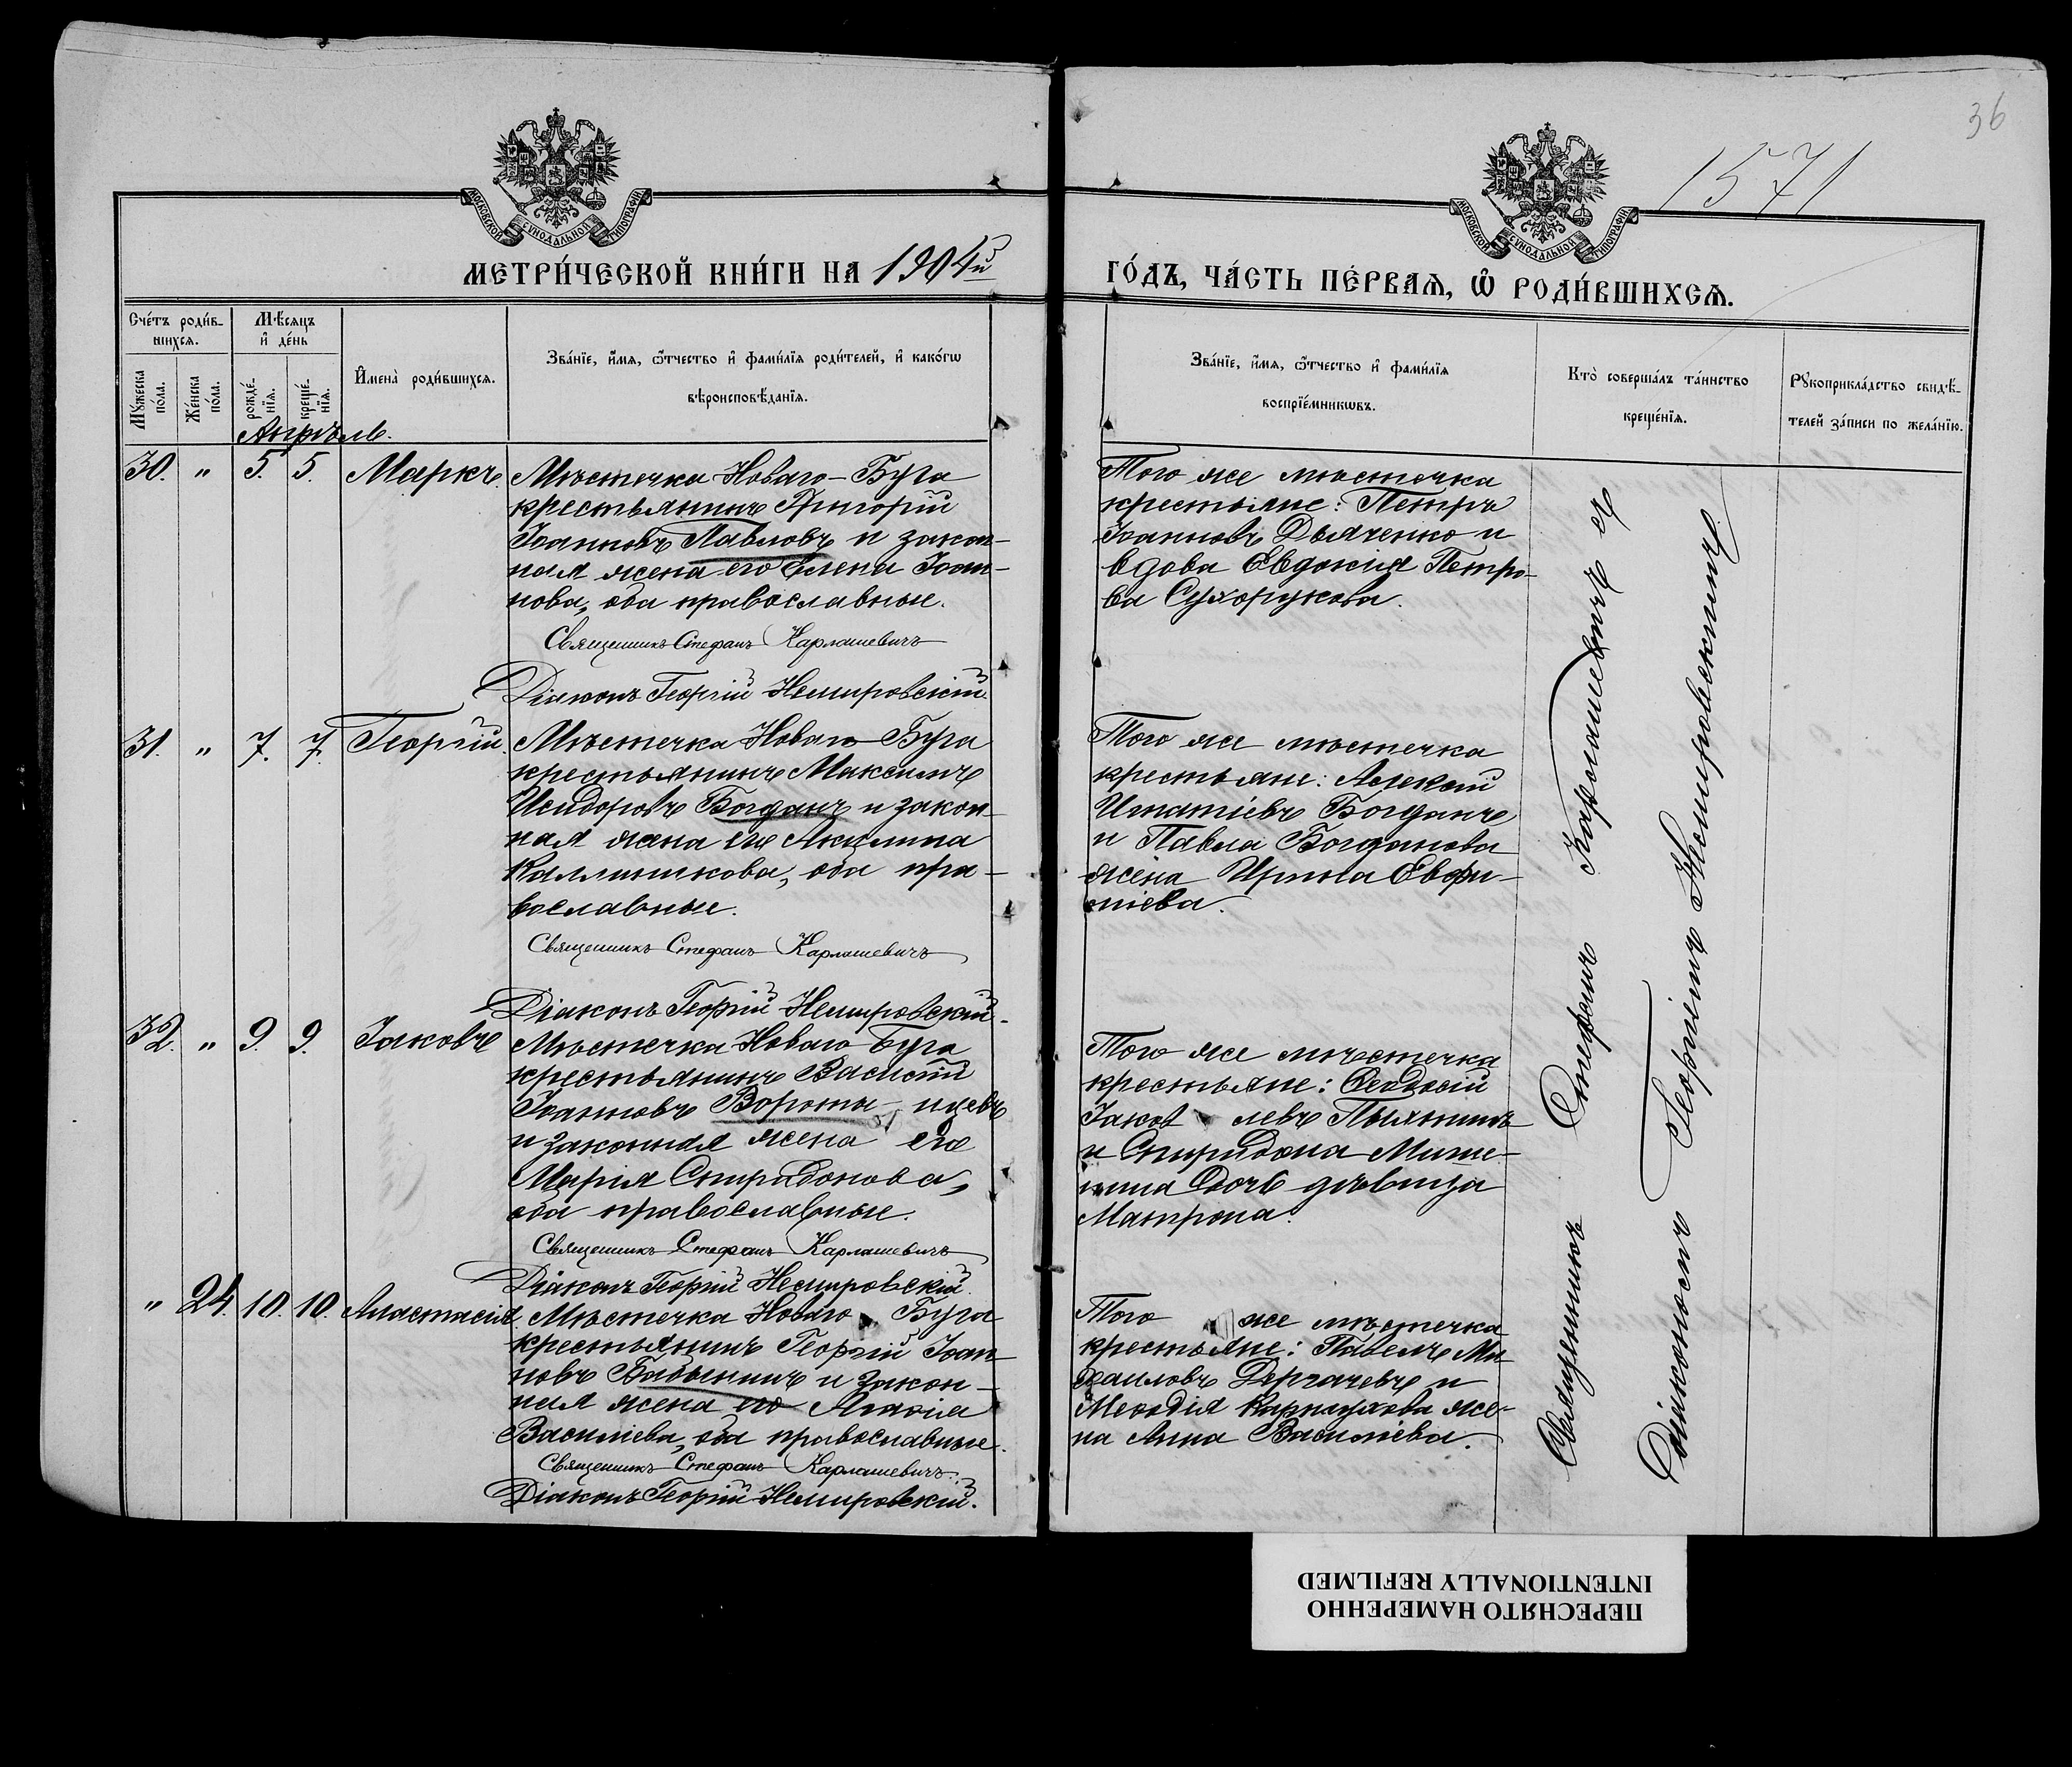 36
1571
МОСКОВСКОЙ СѴНОДАЛЬНОЙ ТИПОГРАФІИ
МОСКОВСКОЙ СѴНОДАЛЬНОЙ ТИПОГРАФІИ
МЕТРИ́ЧЕСКОЙ КНИ́ГИ НА 1904й
ГО́ДЪ, ЧА́СТЬ ПЕ́РВАѦ, Ѽ РОДИ́ВШИХСѦ.
Сче́тъ роди́в-
шихсѧ.
Мꙋжеска по́ла.
Же́нска по́ла.
Мѣ́сѧцъ и҆ де́нь
рожде́-нїѧ.
креще́-нїѧ.
И҆мена̀ роди́вшихсѧ.
Зва́нїе, и҆́мѧ, ѻ҆́тчество и҆ фами́лїѧ роди́телей, и҆ како́гѡ
вѣроисповѣ́данїѧ.
Зва́нїе, и҆́мѧ, ѻ҆́тчество и҆ фами́лїѧ
воспрїе́мникѡвъ.
Кто̀ соверша́лъ та́инство
креще́нїѧ.
Рꙋкоприкла́дство свидѣ́-
телей за́писи по жела́нїю.
Апрѣль.
30. " 5. 5. Маркъ.
Мѣстечка Новаго-Буга
крестьянинъ Григорій
Іоанновъ Павловъ и закон-
ная жена его Елена Іоан-
нова, оба православные.
Священникъ Стефанъ Карлашевичъ
Діаконъ Георгій Немировскій.
Того же мѣстечка
крестьяне: Петръ
Іоанновъ Дьяченко и
вдова Евдокія Петро-
ва Сухорукова.
31. " 7. 7. Георгій.
Мѣстечка Новаго Буга
крестьянинъ Максимъ
Исидоровъ Богданъ и закон-
ная жена его Акилина
Каллиникова, оба пра-
вославные.
Священникъ Стефанъ Карлашевичъ
Діаконъ Георгій Немировскій.
Того же мѣстечка
крестьяне: Алексій
Игнатіевъ Богданъ
и Павла Богданова
жена Ирина Евфи-
міева.
32. " 9. 9. Іаковъ
Мѣстечка Новаго Буга
крестьянинъ Василій
Іоанновъ Воротынцевъ
и законная жена его
Марія Спиридонова,
оба православные.
Священникъ Стефанъ Карлашевичъ
Діаконъ Георгій Немировскій.
Того же мѣстечка
крестьяне: Феодосій
Іаковлевъ
и Спиридона
дочь дѣвица
Матрона.
" 24. 10. 10. Анастасія.
Мѣстечка Новаго Буга
крестьянинъ Георгій Іоан-
новъ Бабынинъ и закон-
ная жена его Агафія
Василіева, оба православные.
Священникъ Стефанъ Карлашевичъ.
Діаконъ Георгій Немировскій.
Того же мѣстечка
крестьяне: Павелъ Ми-
хаиловъ Дергачевъ и
Меѳодія Карнаухова же-
на Анна Василіева.
Священникъ Стефанъ Карлашевичъ съ
Діакономъ Георгіемъ Немировскимъ.
ПЕРЕСНЯТО НАМЕРЕННО
INTENTIONALLY REFILMED